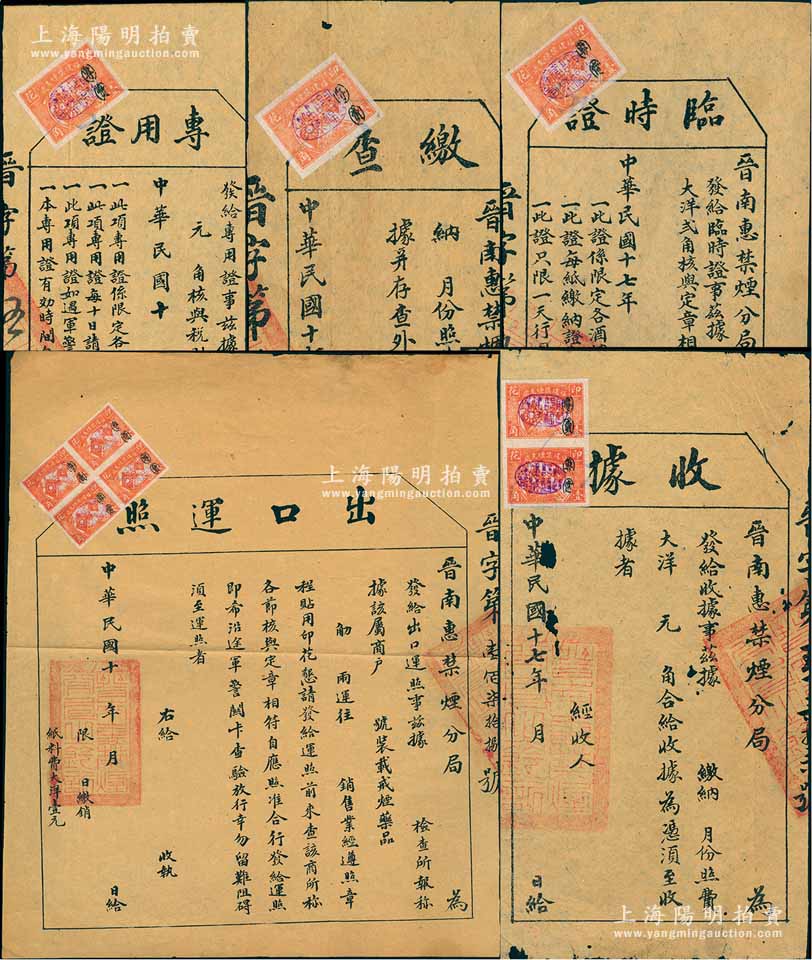 上海陽明拍賣
www.yangmingauction.com
專用證
發給專用證事茲據
元 角核與稅
中華民國十
一此項專用證係限定各
一此項專用證每十日請
一此項專用證如遇軍警
一本專用證有効時間
晉字第
上海陽明拍賣
www.yangmingauction.com
繳查
晉南惠禁煙
納 月份照
據并存查外
中華民國十
晉字第
上海陽明拍賣
www.yangmingauction.com
臨時證
晉南惠禁煙分局
發給臨時證事茲據
大洋弍角核與定章相
中華民國十七年
一此證係限定各酒
一此證每紙繳納證
一此證只限一天行
晉字第
上海陽明拍賣
www.yangmingauction.com
出口運照
晉南惠禁煙分局 為
發給出口運照事茲據 檢查所報称
據該屬商户 號裝載戒煙藥品
觔 兩運往 銷售業經遵照章
程貼用印花懇請發給運照前來查該商所称
各節核與定章相符自應照准合行發給運照
即希沿途軍警關卡查驗放行幸勿留難阻碍
須至運照者
右給 收執
中華民國十 年 月 日給
限 日繳銷
紙料費大洋壹元
晉字第 號
上海陽明拍賣
www.yangmingauction.com
收據
晉南惠禁煙分局 為
發給收據事茲據 繳納 月份照費
大洋 元 角合給收據為憑須至收
據者
經收人
中華民國十七年 月 日給
上海陽明拍賣
www.yangmingauction.com